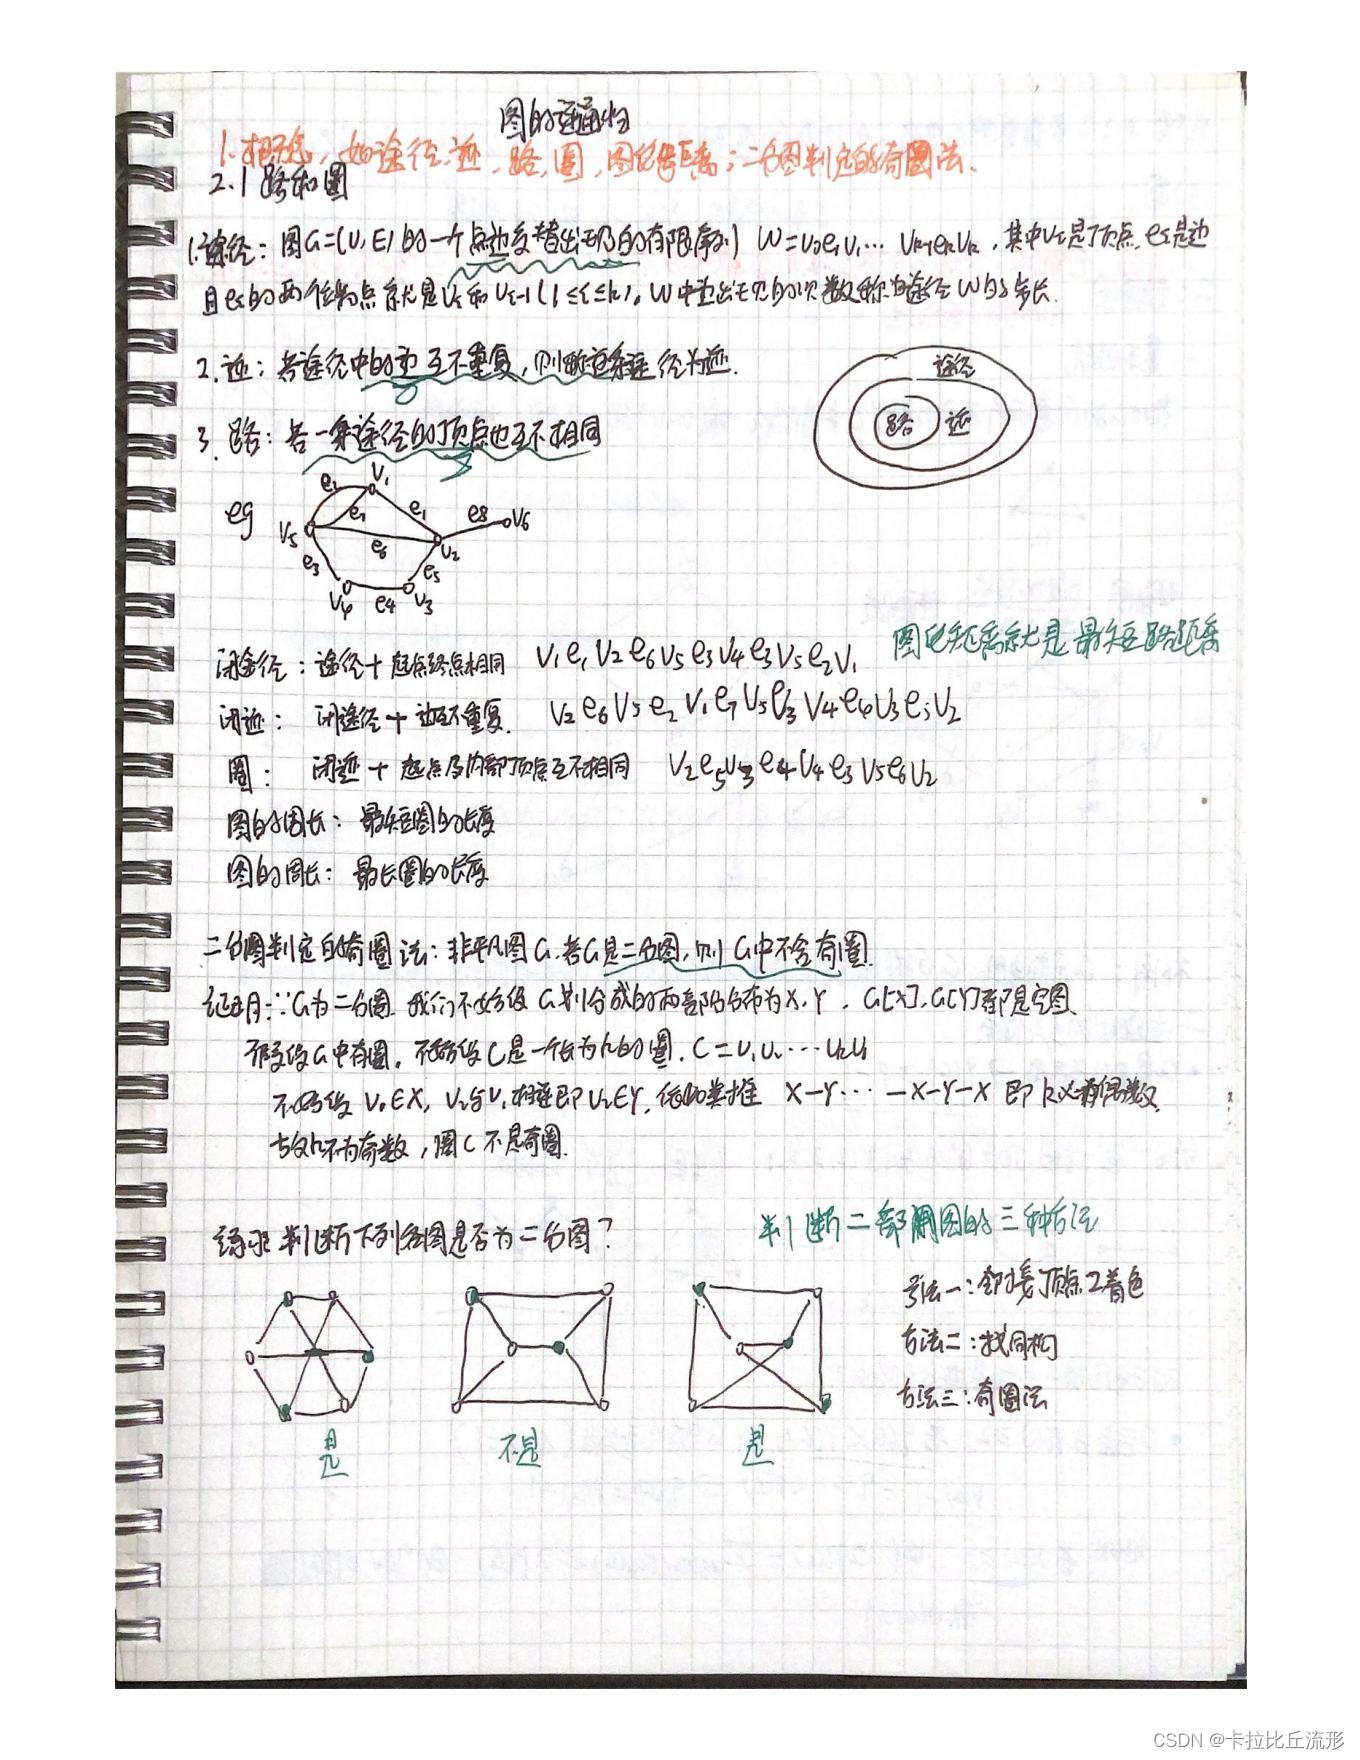 图的连通性
1.概念,如途径,迹,路,圈,图的距离;二分图判定的奇圈法.
2.1 路和圈
1.途径:图G=(V,E)的一个点边交替出现的有限序列 W=v0e1v1… vk-1ekvk,其中vi是顶点,ei是边
且ei的两个个端点就是vi和vi-1(1≤i≤k)。W中边出现的次数称为途径W的步长.
2.迹:若途径中的边互不重复,则称这条途径为迹.
途径
路
迹
3.路:若一条途径的顶点也互不相同
eg
e2 V1
e7 e1
V5 e6 V2 e8 V6
e3 e5
V4 e4 V3
图的距离就是最短路距离
闭途径:途径+起点终点相同 V1e1V2e6V5e3V4e3V5e2V1
闭迹:闭途径+边互不重复. V2e6V5e2V1e7V5e3V4e4V3e5V2
圈:闭迹+起点及内部顶点互不相同 V2e5V3e4V4e3V5e6V2
图的围长:最短圈的长度
图的周长:最长圈的长度
二分图判定的奇圈法:非平凡图G,若G是二分图,则G中不含奇圈.
证明:∵G为二分图 我们不妨设G划分成的两部分分布为X,Y,G[X],G[Y]都是空图.
G中有圈,不妨设C是一个长为k的圈,C=v1v2…vkv1
不妨设v1∈X,v2与v1相连即v2∈Y,依此类推 X-Y…-X-Y-X 即k必有偶数.
故k不为奇数,圈C不是奇圈.
练习 判断下列各图是否为二分图?
判断二部图的三种方法
方法一:邻接顶点2着色
方法二:找同构
方法三:奇圈法
是 不是 是
CSDN @卡拉比丘流形